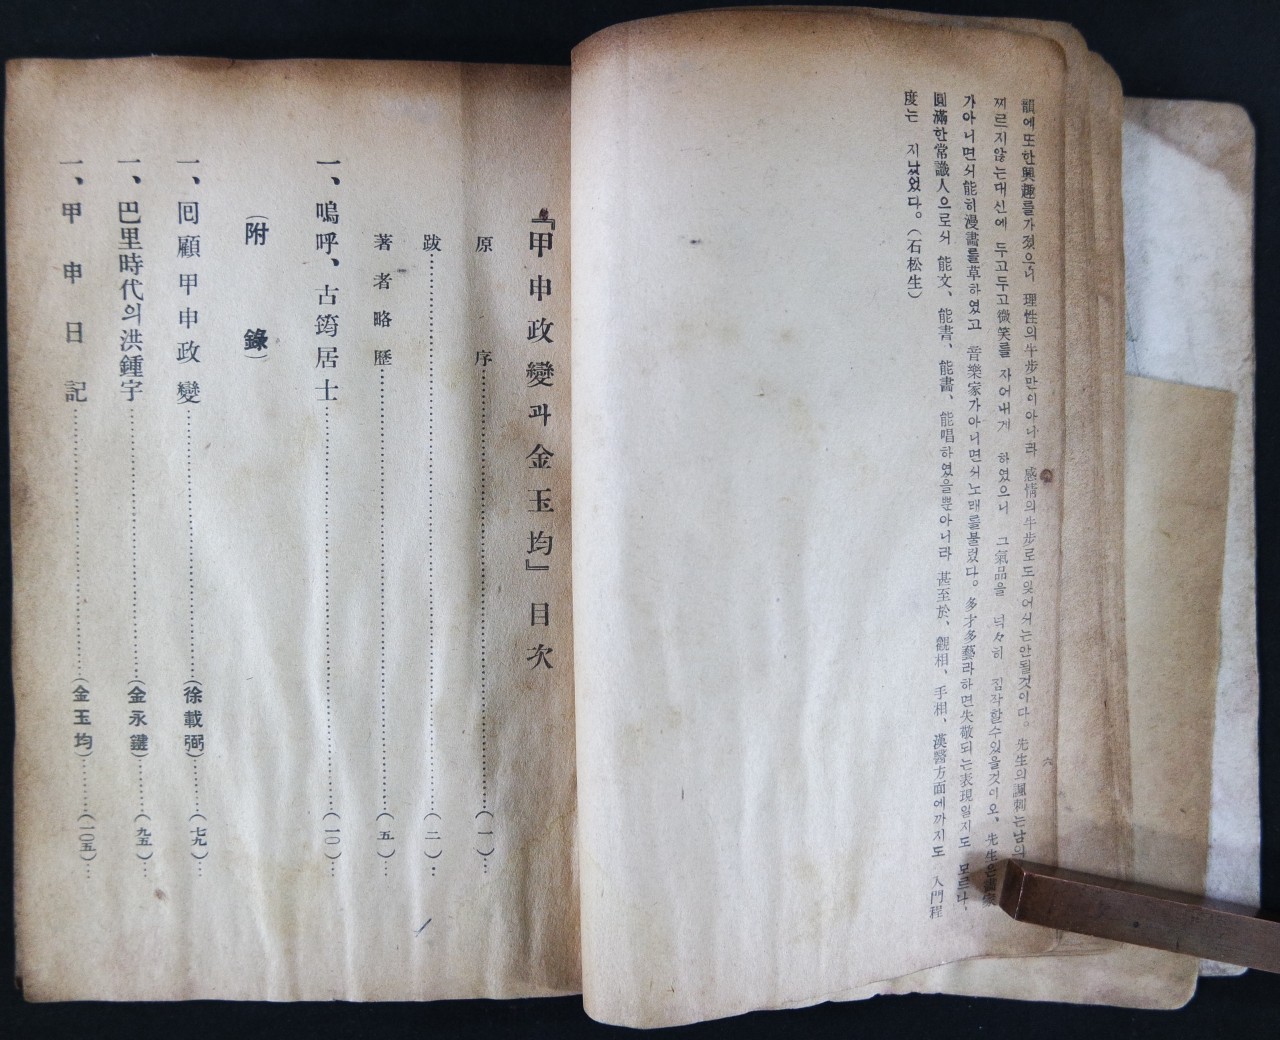 韻에또한興趣를가젓으니 理性의牛步만이아니라 感情의牛步로도잊어서는안될것이다。先生의諷刺는남의
찌르지않는대신에 두고두고微笑를 자어내게 하였으니 그氣品을 넉々히 짐작할수있을것이오、先生은畵家
가아니면서能히漫畵를草하였고 音樂家가아니면서노래를불렀다。多才多藝라하면失敬되는表現일지도 모르나、
圓滿한常識人으로서 能文、能書、能畵、能唱하였을뿐아니라 甚至於、觀相、手相、漢醫方面에까지도 入門程
度는 지났었다。(石松生)
六
『甲申政變과金玉均』目次
原序……(一)…
跋……(二)…
著者略歷……(五)…
一、嗚呼、古筠居士……(一〇)…
(附錄)
一、回顧甲申政變……(徐載弼)……(七九)…
一、巴里時代의洪鍾宇……(金永鍵)……(九五)…
一、甲申日記……(金玉均)……(一〇五)…